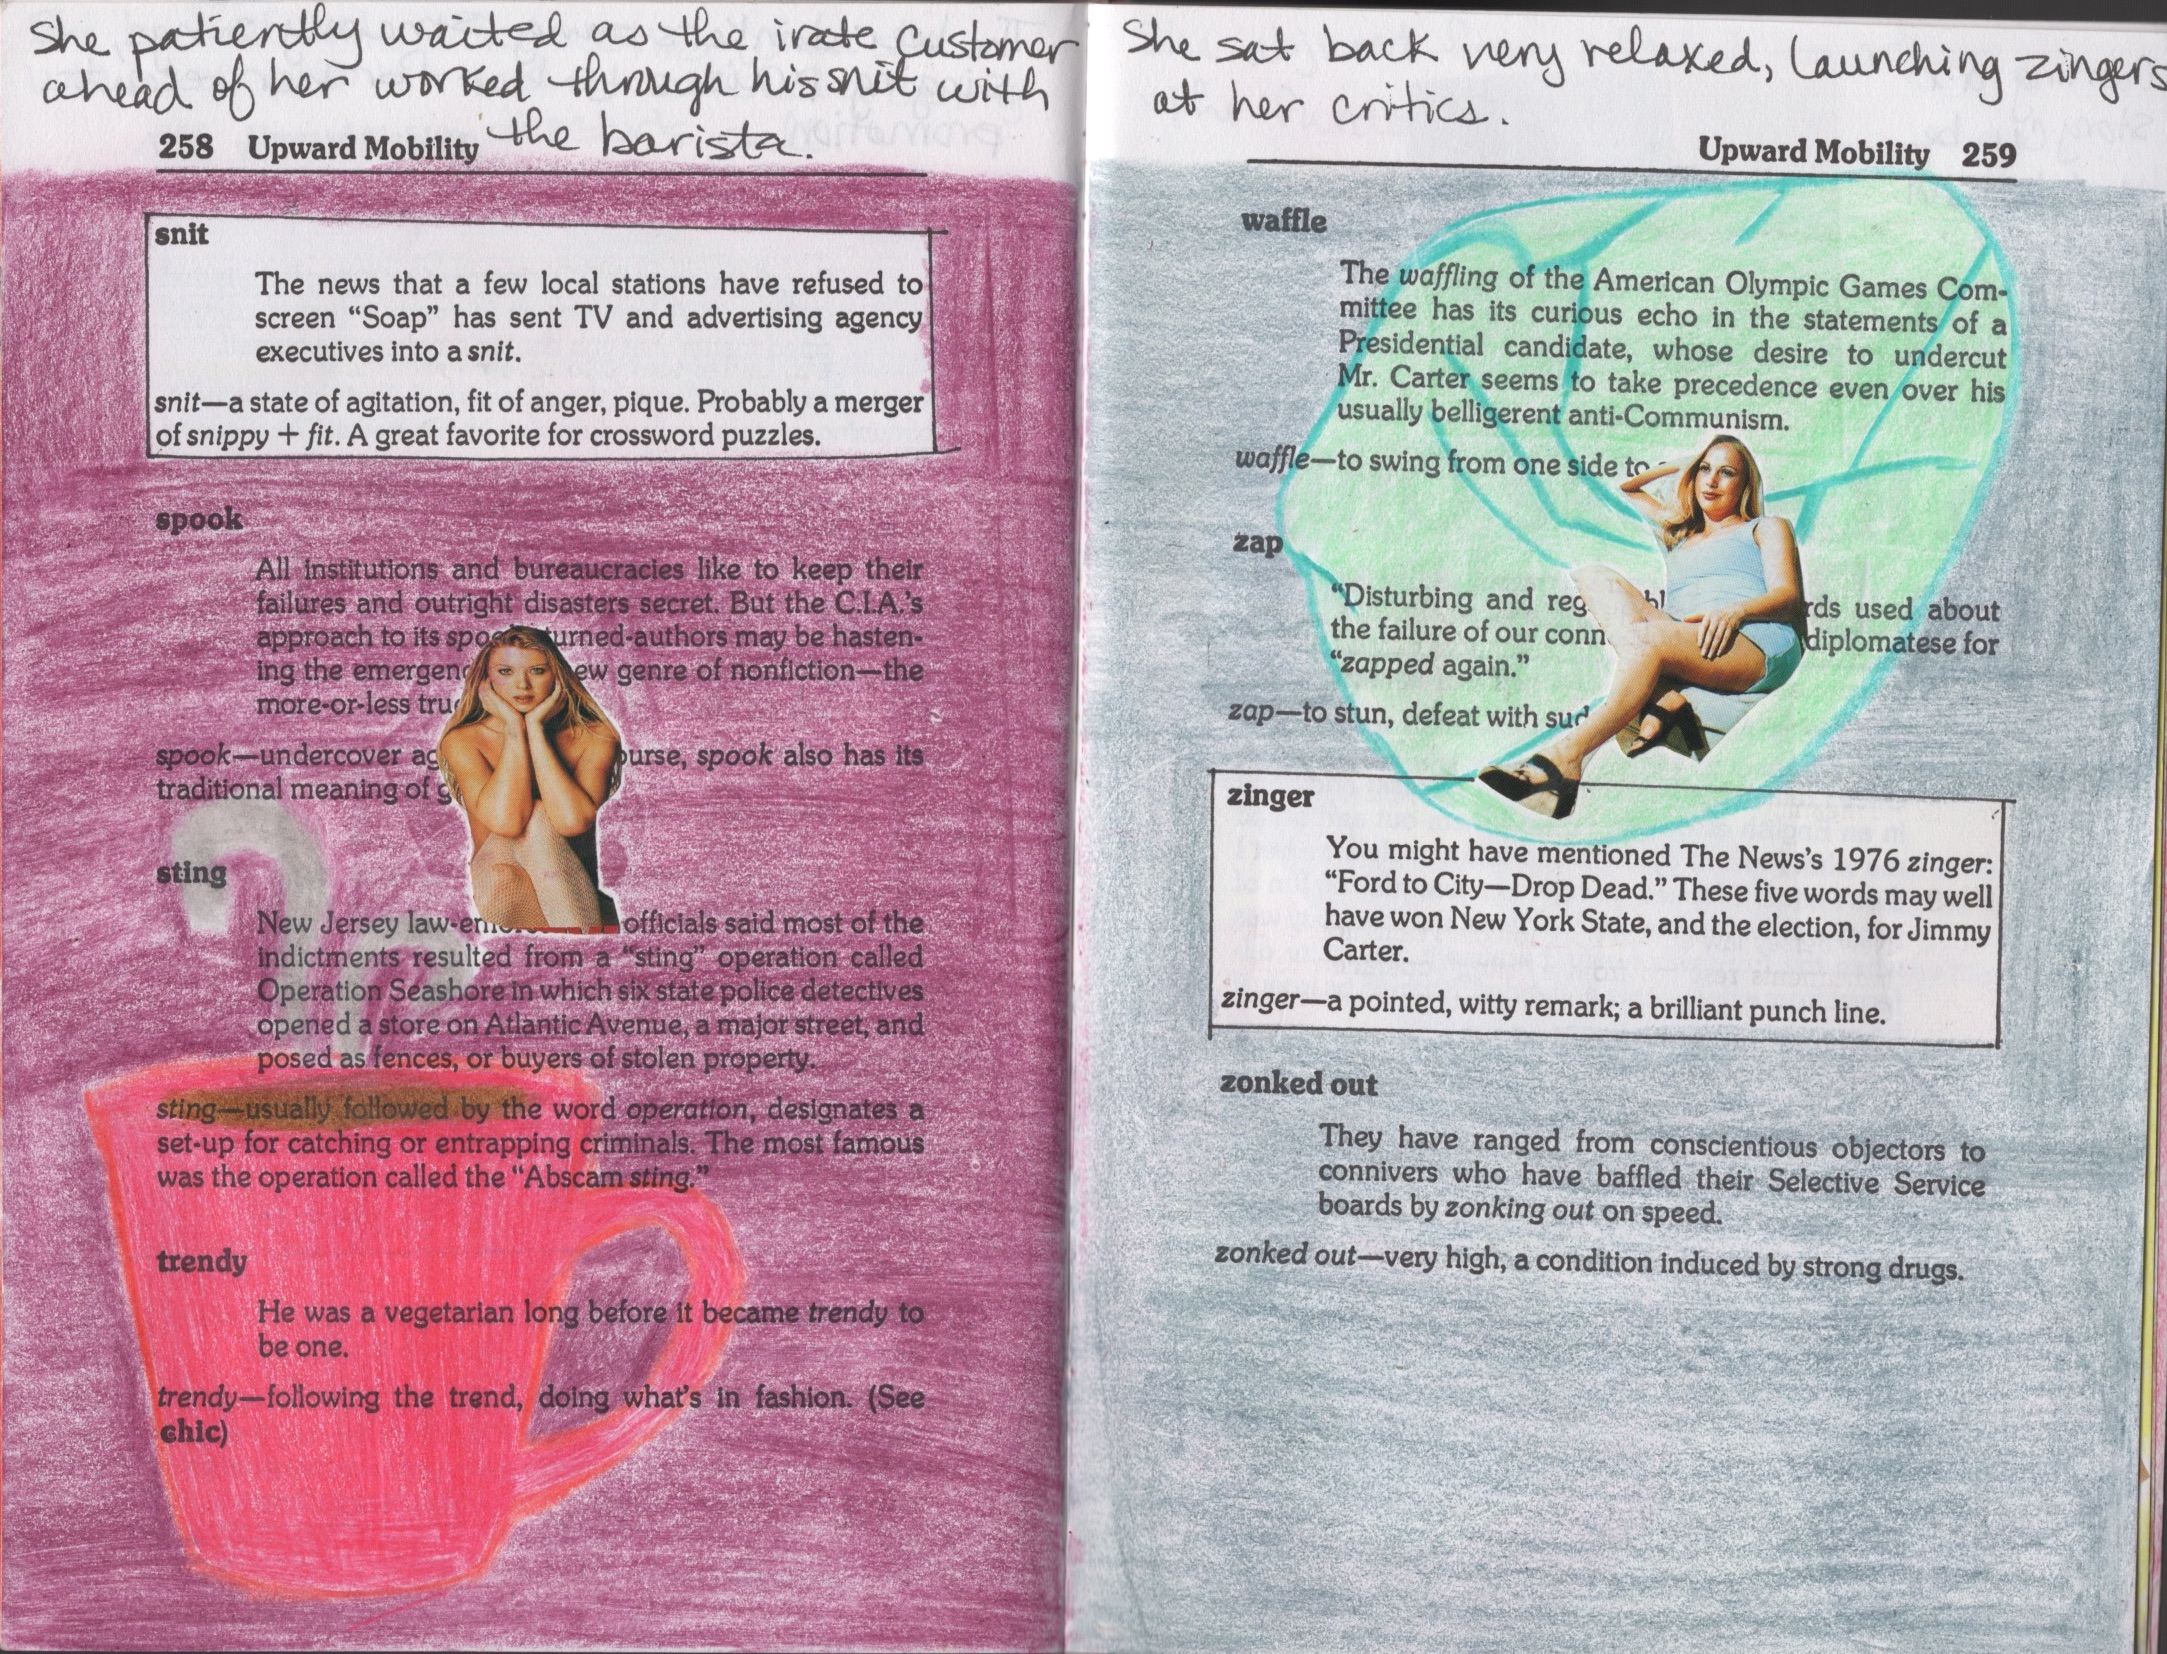 She patiently waited as the irate customer
ahead of her worked through his snit with
the barista.
258 Upward Mobility
snit
The news that a few local stations have refused to
screen “Soap” has sent TV and advertising agency
executives into a snit.
snit—a state of agitation, fit of anger, pique. Probably a merger
of snippy + fit. A great favorite for crossword puzzles.
spook
All institutions and bureaucracies like to keep their
failures and outright disasters secret. But the C.I.A.’s
approach to its turned-authors may be hasten-
ing the genre of nonfiction—the
more-or-less
spook—undercover spook also has its
traditional meaning of
sting
New Jersey officials said most of the
indictments resulted from a “sting” operation called
Operation Seashore in which six state police detectives
opened a store on Atlantic Avenue, a major street, and
posed as fences, or buyers of stolen property.
sting—usually followed by the word operation, designates a
set-up for catching or entrapping criminals. The most famous
was the operation called the “Abscam sting.”
trendy
He was a vegetarian long before it became trendy to
be one.
trendy—following the trend, doing what’s in fashion. (See
chic)
She sat back very relaxed, launching zingers
at her critics.
Upward Mobility 259
waffle
The waffling of the American Olympic Games Com-
mittee has its curious echo in the statements of a
Presidential candidate, whose desire to undercut
Mr. Carter seems to take precedence even over his
usually belligerent anti-Communism.
waffle—to swing from one side to
zap
“Disturbing and used about
the failure of our diplomatese for
“zapped again.”
zap—to stun, defeat with
zinger
You might have mentioned The News’s 1976 zinger:
“Ford to City—Drop Dead.” These five words may well
have won New York State, and the election, for Jimmy
Carter.
zinger—a pointed, witty remark; a brilliant punch line.
zonked out
They have ranged from conscientious objectors to
connivers who have baffled their Selective Service
boards by zonking out on speed.
zonked out—very high, a condition induced by strong drugs.